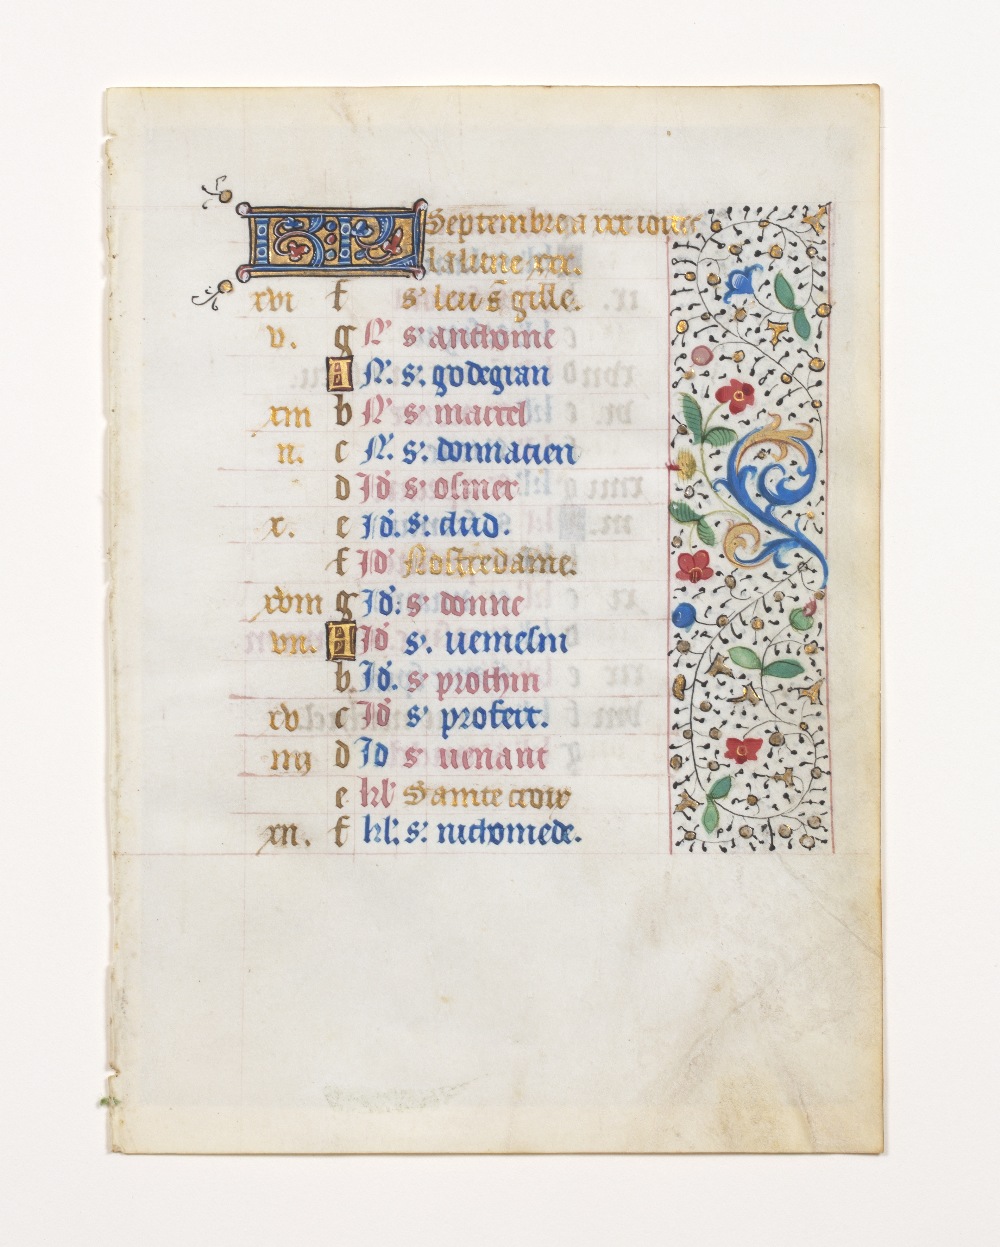 KL Septembre a xxx iours
la lune xxx.
xvi f s' leu s gille.
v. g N' s' anthoine
A N'. s'. godegran
xiii b N' s' marcel
ii. c N'. s'. donnacien
d Id' s' osmer
x. e Id'. s'. clud.
f Id' Nostre dame.
xviii g Id'. s' donne
vii. A Id' s'. uemesin
b. Id'. s' prothin
xv c Id' s' profect.
iiij d Id s' uenant
e kl' Sainte croix
xii. f kl'. s'. nichomede.